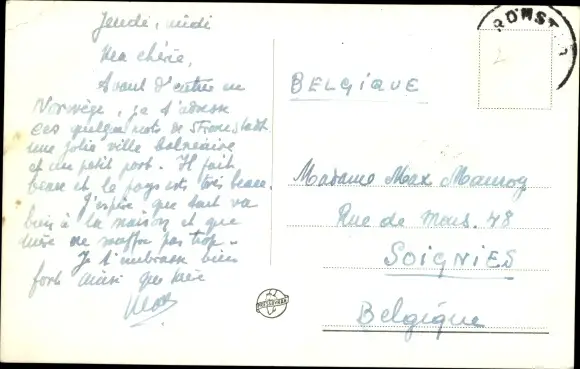 Jeudi, midi
Ma chérie,
Avant d'entrer en
Norvège, je t'adresse
ces quelques mots de Stromstadt
une jolie ville balnéaire
et un petit port. Il fait
beau et le pays est très beau.
J'espère que tout va
bien à la maison et que
mère ne souffre pas trop.
Je t'embrasse bien
fort ainsi que mère
Max
BELGIQUE
Madame Max Mauroy
Rue de Mons. 48
SOIGNIES
Belgique